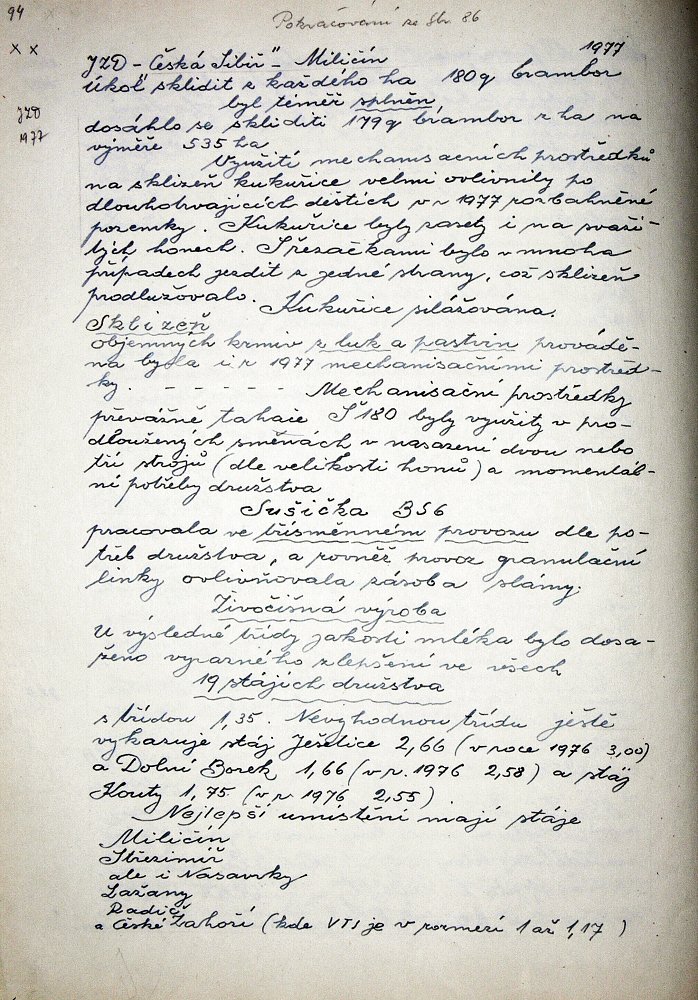 94
Pokračování ze str. 86
x x
JZD - Česká Sibiř" - Miličín 1977
JZD
1977
Úkol sklidit z každého ha 180 q brambor
byl téměř splněn,
dosáhlo se skliditi 179 q brambor z ha na
výměře 535 ha
Využití mechanisačních prostředků
na sklizeň kukuřice velmi ovlivnily po
dlouhotrvajících deštích v r 1977 rozbahněné
pozemky. Kukuřice byly zasety i na svaži-
tých honech. Sřezačkami bylo v mnoha
případech jezdit z jedné strany, což sklizeň
prodlužovalo. Kukuřice silážována.
Sklizeň
objemných krmiv z luk a pastvin provádě-
na byla i r 1977 mechanisačními prostřed-
ky. - - - - - - Mechanisační prostředky
převážně tahače Š 180 byly využity v pro-
dloužených směnách v nasazení dvou nebo
tří strojů (dle velikosti honů) a momentál-
ní potřeby družstva
Sušička BS6
pracovala ve třísměnném provozu dle po-
třeb družstva, a rovněž provoz granulační
linky ovlivňovala zásoba slámy.
Živočišná výroba
U výsledné třídy jakosti mléka bylo dosa-
ženo výrazného zlepšení ve všech
19 stájích družstva
s třídou 1,35. Nevýhodnou třídu ještě
vykazuje stáj Ješetice 2,66 (v roce 1976 3,00)
a Dolní Borek 1,66 (v r. 1976 2,58) a stáj
Kouty 1,75 (v r 1976 2,55)
Nejlepší umístění mají stáje
Miličín
Střezimíř
ale i Nasavrky
Lažany
Radíč
a České Záhoří (kde VTJ je v rozmezí 1 až 1,17 )